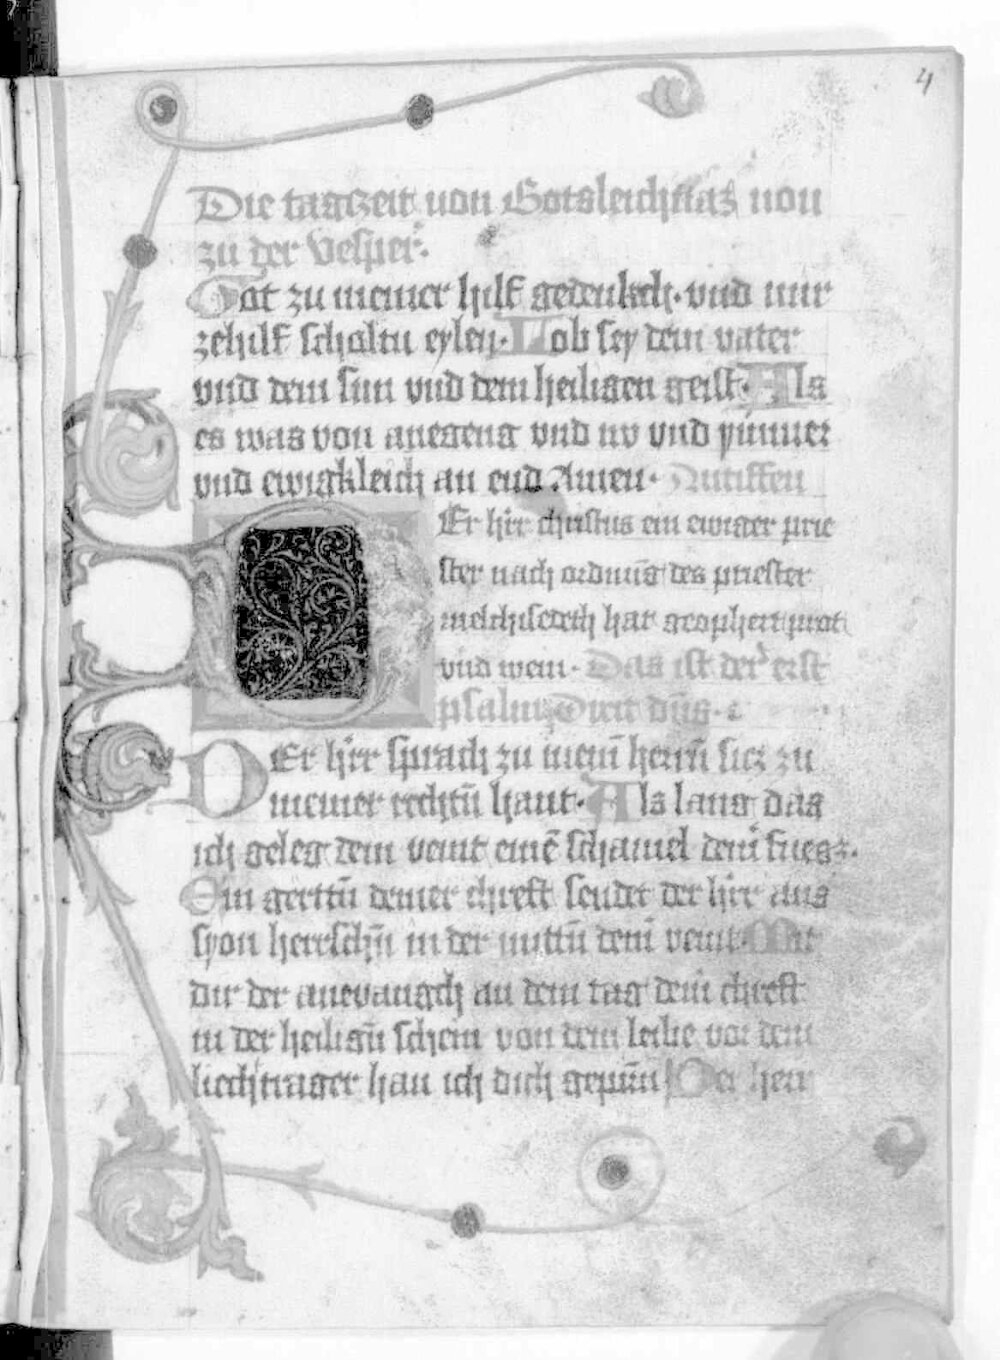 4
Die tagzeit von Gotsleichnas von
zu der vesper.
Got zu meiner hilf gedenkch. vnd mir
zehilf scholtu eylen. Lob sey dem vater
vnd dem sun vnd dem heiligen geist. Als
es was von anegeng vnd nv vnd ymmer
vnd ewigkleich an end Amen. Antiffen
Er hirr christus ein ewiger prie
ster nach ordnūg des priester
melchisedech hat geophert prot
vnd wein. Das ist der erst
psalm Dixit dn̄s.
DEr hirr sprach zu meim̄ herrn̄ sicz zu
meiner rechtn̄ hant. Als lang das
ich geleg dein veint einē schamel deinr̄ fuezz.
Ein gerttn̄ deiner chreft sendet der hirr aus
syon herrschn̄ in der mittn̄ dein̄ veint. Mit
dir der anevangch an dem tag dein̄ chreft
in der heilign̄ schein von dem leibe vor dem
liechtrager han ich dich gepurn̄ Der herr